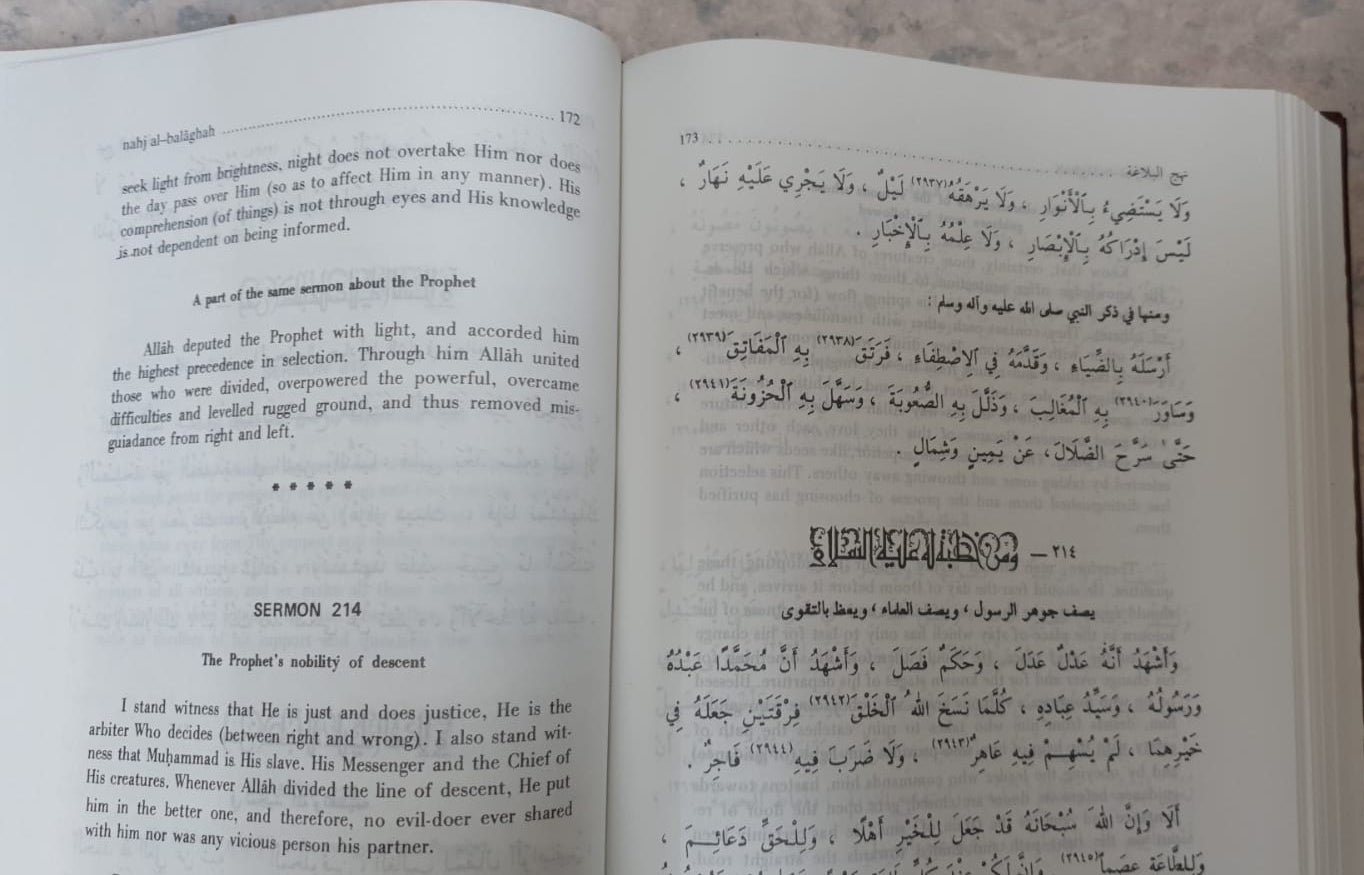 nahj al-balāghah ........................................................ 172
seek light from brightness, night does not overtake Him nor does
the day pass over Him (so as to affect Him in any manner). His
comprehension (of things) is not through eyes and His knowledge
is not dependent on being informed.
A part of the same sermon about the Prophet
Allāh deputed the Prophet with light, and accorded him
the highest precedence in selection. Through him Allāh united
those who were divided, overpowered the powerful, overcame
difficulties and levelled rugged ground, and thus removed mis-
guiadance from right and left.
* * * * *
SERMON 214
The Prophet's nobility of descent
I stand witness that He is just and does justice, He is the
arbiter Who decides (between right and wrong). I also stand wit-
ness that Muḥammad is His slave. His Messenger and the Chief of
His creatures. Whenever Allāh divided the line of descent, He put
him in the better one, and therefore, no evil-doer ever shared
with him nor was any vicious person his partner.
نهج البلاغة ........................................................ 173
وَلَا يَسْتَضِيءُ بِٱلْأَنْوَارِ ، وَلَا يَرْهَقُهُ(٢٩٣٧) لَيْلٌ ، وَلَا يَجْرِي عَلَيْهِ نَهَارٌ ،
لَيْسَ إِدْرَاكُهُ بِٱلْإِبْصَارِ ، وَلَا عِلْمُهُ بِٱلْإِخْبَارِ .
ومنها في ذكر النبي صلى الله عليه وآله وسلم :
أَرْسَلَهُ بِالضِّيَاءِ ، وَقَدَّمَهُ فِي ٱلِاصْطِفَاءِ ، فَرَتَقَ(٢٩٣٨) بِهِ ٱلْمَفَاتِقَ(٢٩٣٩) ،
وَسَاوَرَ(٢٩٤٠) بِهِ ٱلْمُغَالِبَ ، وَذَلَّلَ بِهِ الصُّعُوبَةَ ، وَسَهَّلَ بِهِ ٱلْحُزُونَةَ(٢٩٤١) ،
حَتَّىٰ سَرَّحَ الضَّلَالَ، عَنْ يَمِينٍ وَشِمَالٍ .
٢١٤ – ومن خطبة له عليه السلام
يصف جوهر الرسول ، ويصف العلماء ، ويعظ بالتقوى
وَأَشْهَدُ أَنَّهُ عَدْلٌ عَدَلَ ، وَحَكَمٌ فَصَلَ ، وَأَشْهَدُ أَنَّ مُحَمَّدًا عَبْدُهُ
وَرَسُولُهُ ، وَسَيِّدُ عِبَادِهِ ، كُلَّمَا نَسَخَ اللهُ ٱلْخَلْقَ(٢٩٤٢) فِرْقَتَيْنِ جَعَلَهُ فِي
خَيْرِهِمَا ، لَمْ يُسْهِمْ فِيهِ عَاهِرٌ(٢٩٤٣) ، وَلَا ضَرَبَ فِيهِ(٢٩٤٤) فَاجِرٌ .
أَلَا وَإِنَّ اللهَ سُبْحَانَهُ قَدْ جَعَلَ لِلْخَيْرِ أَهْلًا ، وَلِلْحَقِّ دَعَائِمَ ،
وَلِلطَّاعَةِ عِصَمًا(٢٩٤٥)